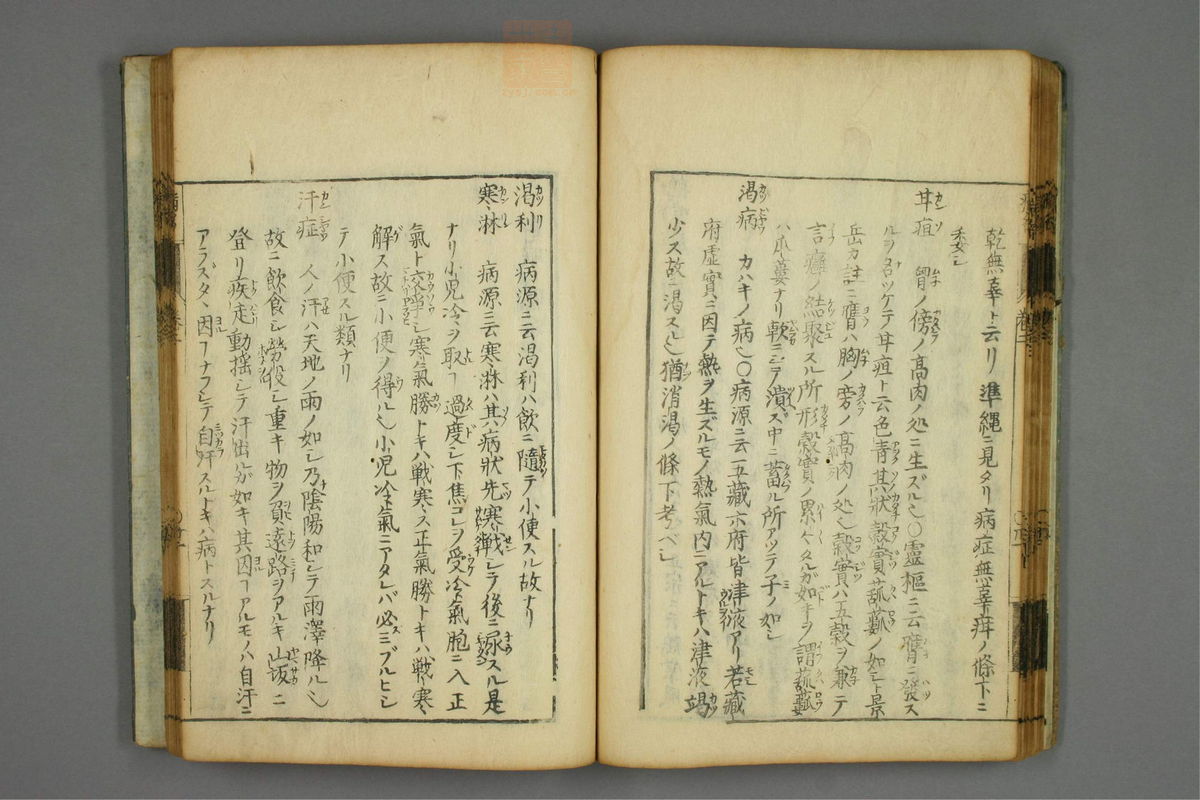 乾無辜ト云リ 準縄ニ見タリ 病症無辜疳ノ條下ニ
委シ
甘疽 胷ノ傍ノ高肉ノ処ニ生ズル也〇靈樞ニ云膺ニ發ス
ルヲ名ツケテ甘疽ト云色青其狀穀實菰蓏ノ如シト景
岳カ註ニ膺ハ胸ノ旁ノ高肉ノ処也穀實ハ五穀ヲ兼ニテ
言癰ノ結聚スル所形穀實ノ累々タルガ如キヲ謂菰蓏
ハ瓜蔞ナリ軟ニシテ潰ズ中ニ蓄ル所アツテ子ノ如シ
渇病 カハキノ病也〇病源ニ云五藏六府皆津液アリ若藏
府虚實ニ因テ熱ヲ生ズルモノ熱氣内ニアルトキハ津液竭
少ス故ニ渇スル也猶消渇ノ條下考ベシ
渇利 病源ニ云渇利ハ飲ニ隨テ小便スル故ナリ
寒淋 病源ニ云寒淋ハ其病狀先寒戰シテ後ニ尿スル是
ナリ小児冷ヲ取ヿ過度シ下焦コレヲ受冷氣胞ニ入正
氣ト交爭シ寒氣勝トキハ戰寒ス正氣勝トキハ戰寒
解ス故ニ小便ノ得ル也小児冷氣ニアタレバ必ミブルヒシ
テ小便スル類ナリ
汗症 人ノ汗ハ天地ノ雨ノ如シ乃陰陽和シテ雨澤降ル也
故ニ飲食シ勞役シ重キ物ヲ負遠路ヲアルキ山坂ニ
登リ疾走動揺シテ汗出ルガ如キ其因ヿアルモノハ自汗ニ
アラズタヾ因ヿナフシテ自汗スルトキハ病トスルナリ